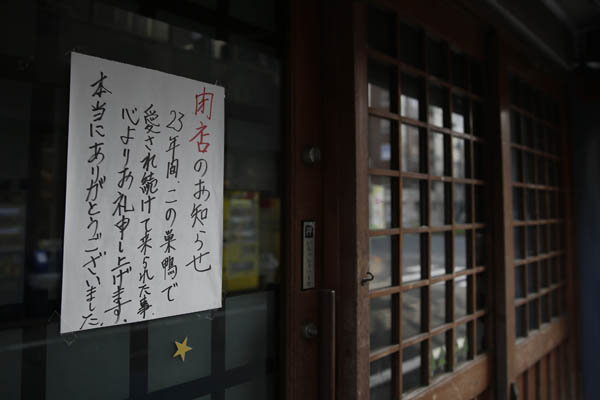 閉店のお知らせ
23年間、この巣鴨で
愛され続けて来られた事、
心よりお礼申し上げます。
本当にありがとうございました。